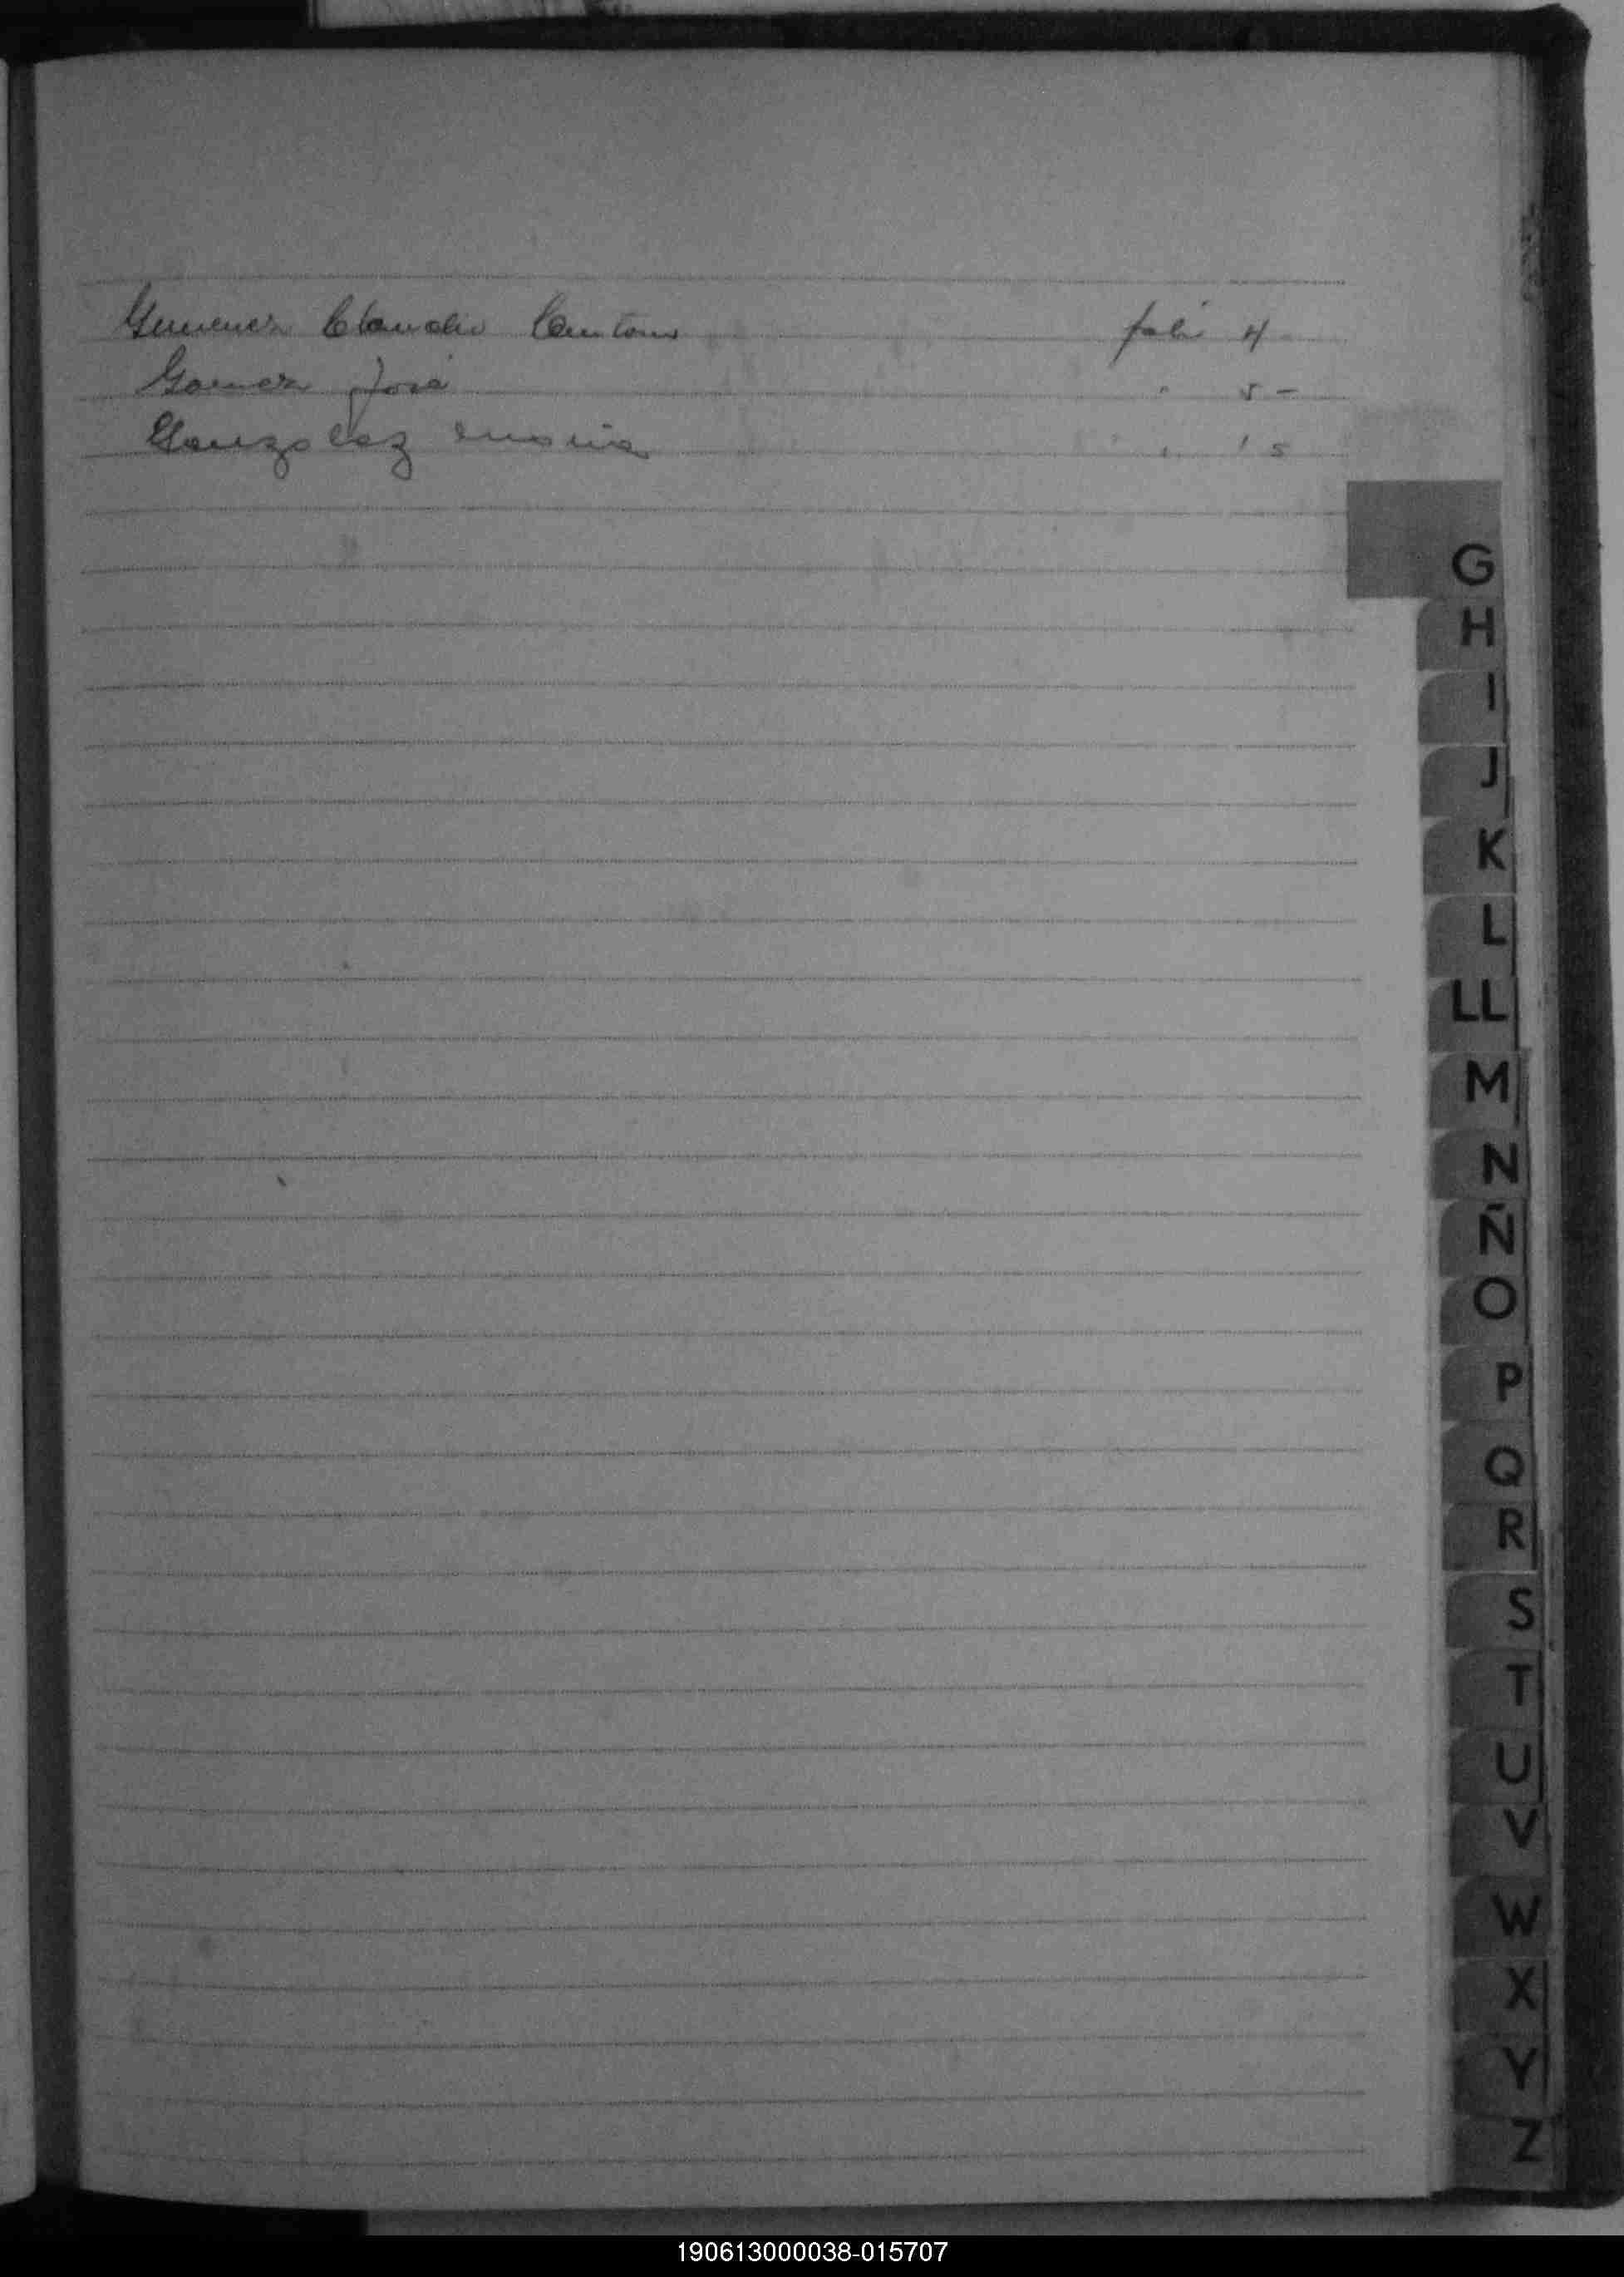 Gimenez Claudio Cantono folio 4
Gomez José " 5 -
Gonzalez maria " 15
G
H
I
J
K
L
LL
M
N
Ñ
O
P
Q
R
S
T
U
V
W
X
Y
Z
190613000038-015707